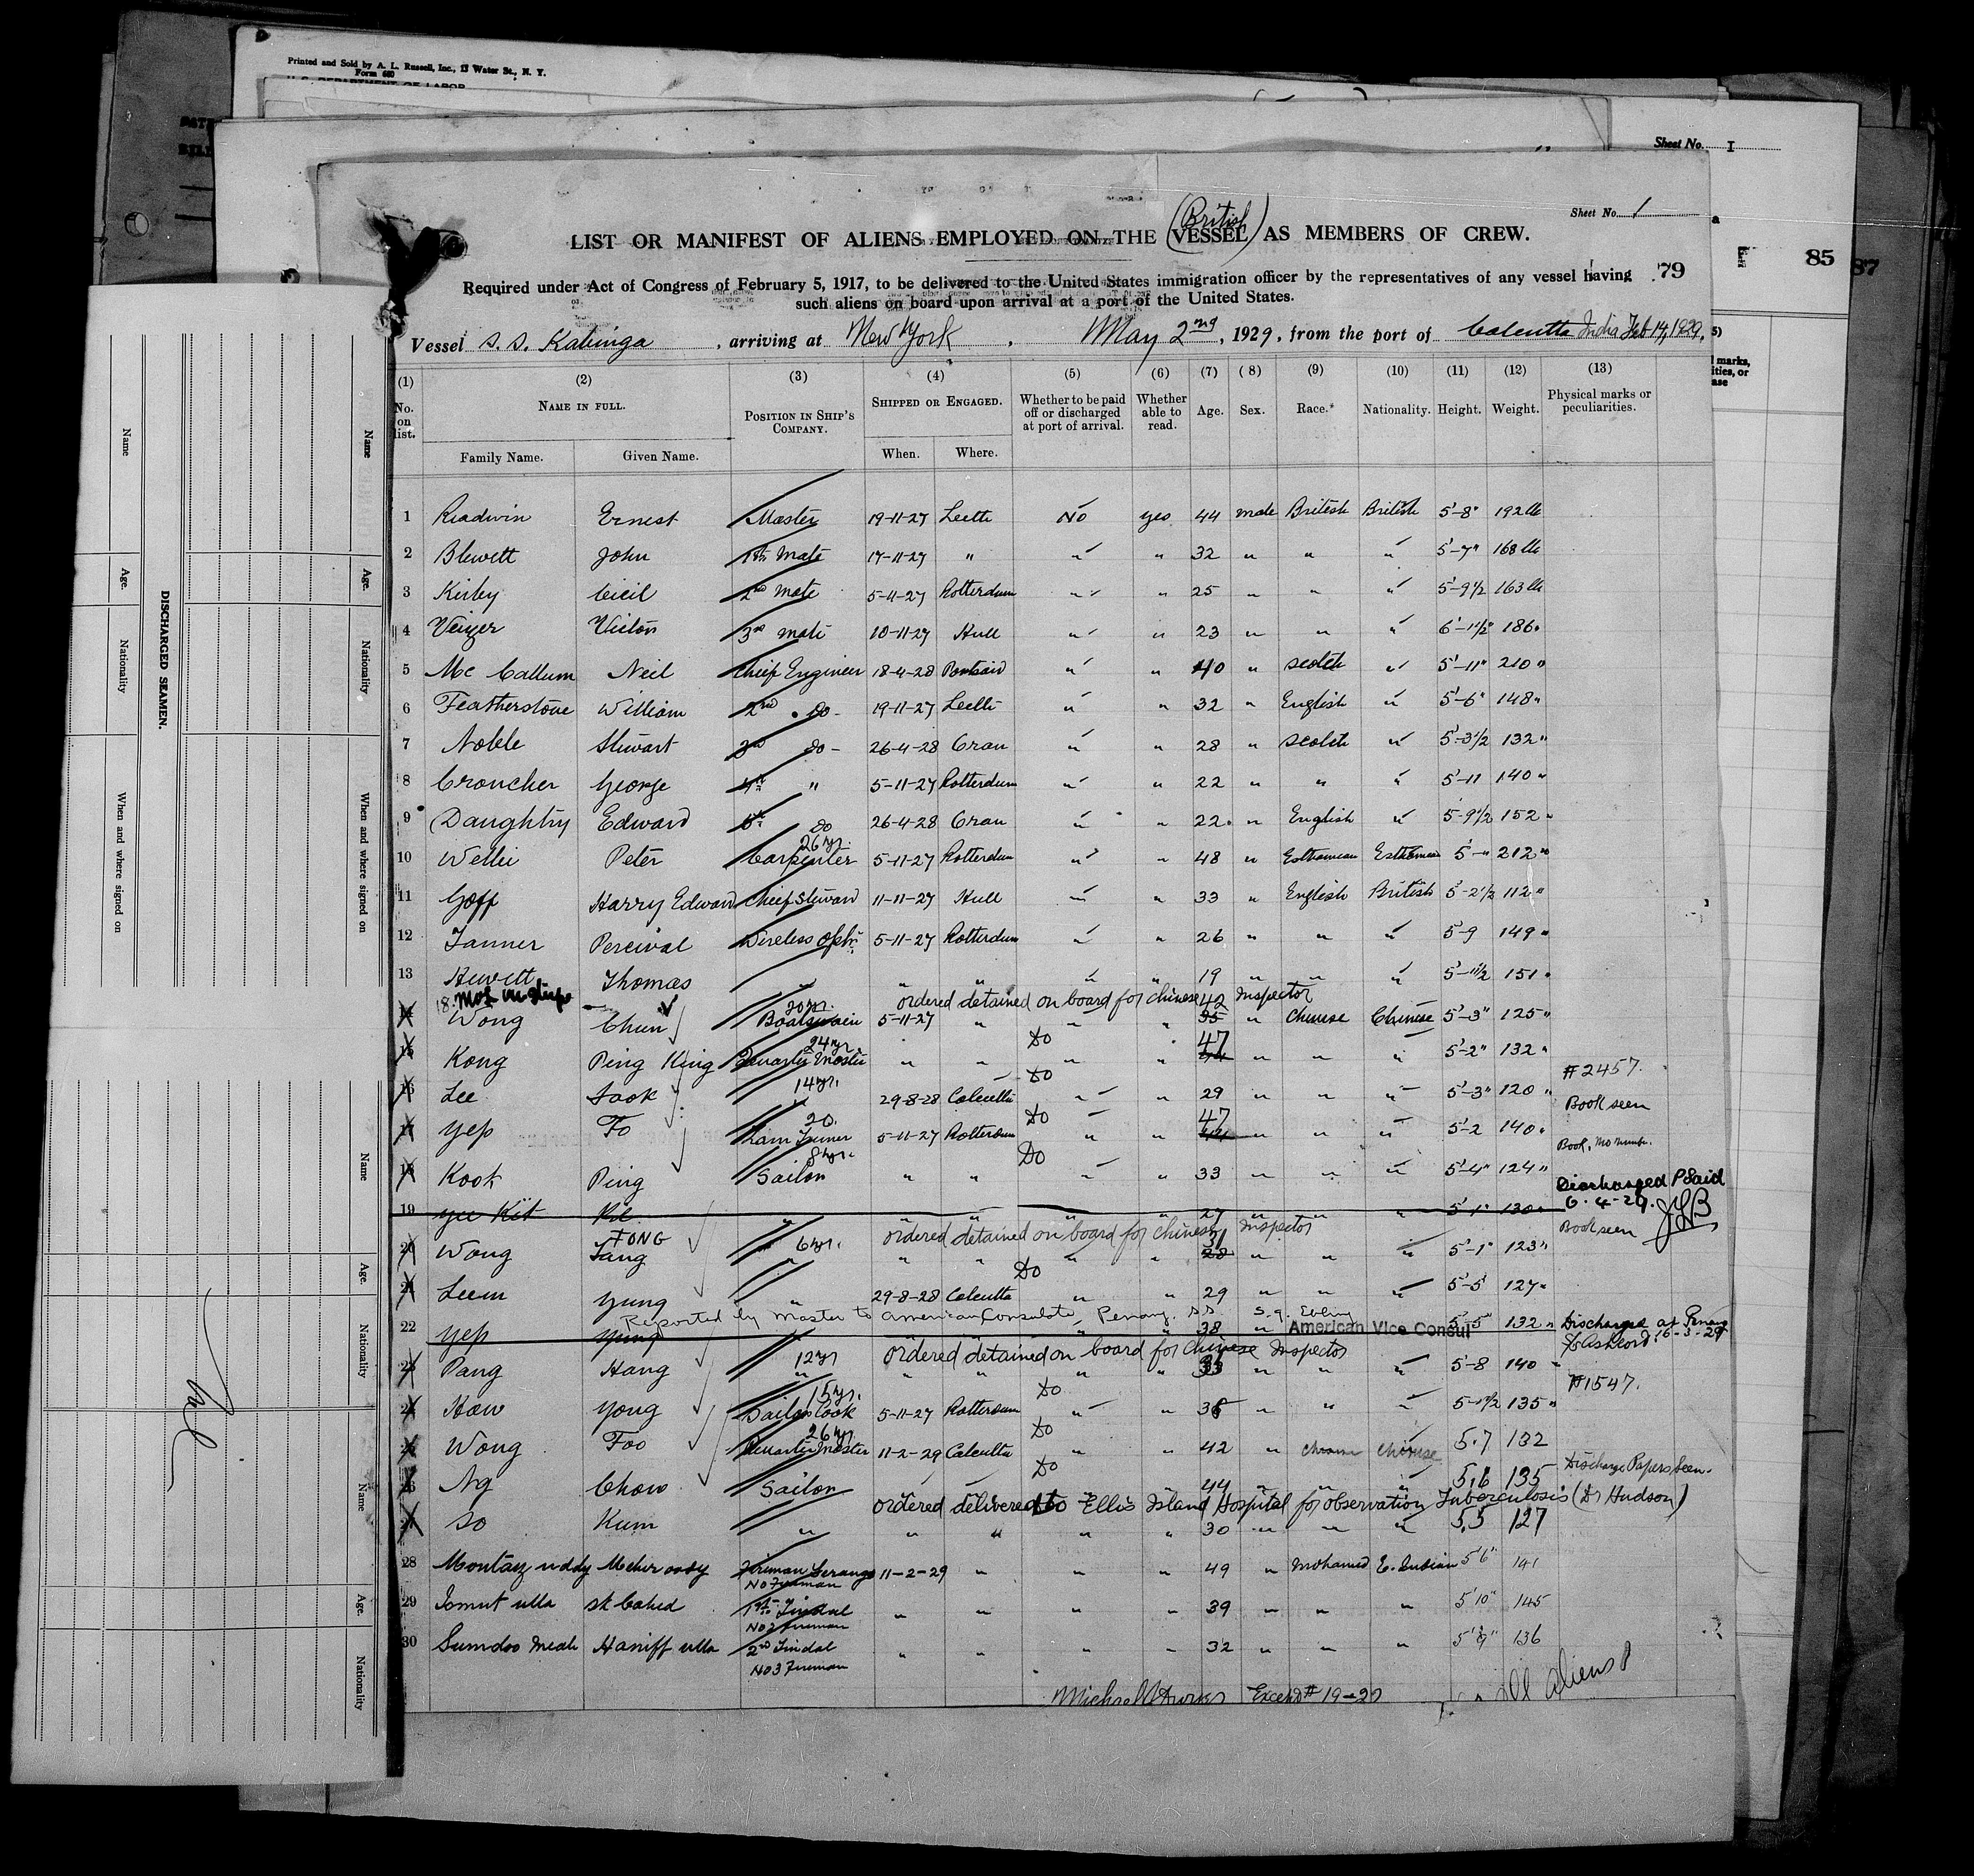 Printed and Sold by A. L. Russell, Inc., 13 Water St., N. Y.
Form 680
U. S. DEPARTMENT OF LABOR
Sheet No. I
85
87
Sheet No. 1
(British)
LIST OR MANIFEST OF ALIENS EMPLOYED ON THE VESSEL AS MEMBERS OF CREW.
Required under Act of Congress of February 5, 1917, to be delivered to the United States immigration officer by the representatives of any vessel having
such aliens on board upon arrival at a port of the United States.
79
Vessel S. S. Kabinga, arriving at New York, May 2nd, 1929, from the port of Calcutta India Feb 14, 1929.
(1) (2) (3) (4) (5) (6) (7) (8) (9) (10) (11) (12) (13)
No. on list. NAME IN FULL. POSITION IN SHIP'S COMPANY. SHIPPED OR ENGAGED. Whether to be paid off or discharged at port of arrival. Whether able to read. Age. Sex. Race.* Nationality. Height. Weight. Physical marks or peculiarities.
Family Name. Given Name. When. Where.
1 Readwin Ernest Master 19-11-27 Leith No yes 44 male British British 5'-8" 192 lb
2 Blewett John 1st Mate 17-11-27 " " " 32 " " " 5'-7" 168 lb
3 Kirby Cecil 2nd Mate 5-11-27 Rotterdam " " 25 " " " 5'-9 1/2 163 lb
4 Victor 3rd mate 10-11-27 Hull " " 23 " " " 6'-1 1/2" 186 "
5 Mc Callum Neil Chief Engineer 18-4-28 Portsaid " " 40 " Scotch " 5'-11" 210 "
6 Featherstone William 2nd do - 19-11-27 Leith " " 32 " English " 5'-6" 148 "
7 Noble Stewart 3rd do - 26-4-28 Oran " " 28 " Scotch " 5'-3 1/2 132 "
8 Croucher George 4th " 5-11-27 Rotterdam " " 22 " " " 5'-11 140 "
9 Daughtry Edward 5th do 26-4-28 Oran " " 22 " English " 5'-9 1/2 152 "
26 yr.
10 Peter Carpenter 5-11-27 Rotterdam " " 48 " Esthonean Esthonean 5'-" 212 "
11 Goff Harry Edward Chief Steward 11-11-27 Hull " " 33 " English British 5'-2 1/2 112 "
12 Tanner Percival Wireless Optr 5-11-27 Rotterdam " " 26 " " " 5-9 149 "
13 Hewett Thomas " " " " " 19 " " " 5'-11 1/2 151 "
20 yr. ordered detained on board for chinese Inspector
14 Wong Chun Boatswain 5-11-27 " " " 42 35 " Chinese Chinese 5'-3" 125 "
24 yr. Do
15 Kong Ping King Quarter Master " " " " 47 44 " " " 5'-2" 132 "
14 yr. Do #2457.
16 Lee Sook " 29-8-28 Calcutta " " 29 " " " 5'-3" 120 " Book seen
20. Do
17 Yep To Lamp Trimmer 5-11-27 Rotterdam " " 47 44 " " " 5'-2 140 " Book, no number.
8 yr. Do
18 Kook Ping Sailor " " " " 33 " " " 5'-4" 124 "
Discharged P Said
6-4-29. JGB
19 Yee Kit " " " " " 27 " " " 5'-1" 130 "
TONG 6 yr. ordered detained on board for chinese Inspector Book seen
20 Wong Tang " " " " " 31 28 " " " 5'-1" 123 "
Do
21 Leem Yung " 29-8-28 Calcutta " " 29 " " " 5'-5 127 "
Reported by Master to American Consulate, Penang. S.S.
American Vice Consul
22 Yep Yung " " 38 " 5'-5 132 " Discharged at Penang
16-3-29
12 yr ordered detained on board for chinese Inspector
23 Pang Hang " " " " " 33 " " " 5'-8 140 " #1547.
15 yr. Do
24 Haw Yong Sailor Cook 5-11-27 Rotterdam " " 36 " " " 5-1 1/2 135 "
26 yr. Do
25 Wong Foo Quarter Master 11-2-29 Calcutta " " 42 " Chinese Chinese 5.7 132
Do
26 Ng Chow Sailor " " " " 44 " " " 5.6 135 Discharge Papers seen.
ordered delivered to Ellis Island Hospital for observation Tuberculosis (Dr Hudson)
27 So Kum " " " " " 30 " " " 5.5 127
28 Montaz uddy Meher oody Fireman Serang 11-2-29 " " " 49 " Mohamed E. Indian 5'6" 141
No Fireman
29 Ismut ulla Sk Cahed 1st Tindal " " " " 39 " " " 5'10" 145
No 2 Fireman
30 Sumdoo Meah Haniff ulla 2nd Tindal " " " " 32 " " " 5'9" 136
No 3 Fireman
Except # 19-27
all aliens
DISCHARGED SEAMEN.
Name
Age.
Nationality
When and where signed on
Name
Age.
Nationality
When and where signed on
Name
Age.
Nationality
Name
Age.
Nationality